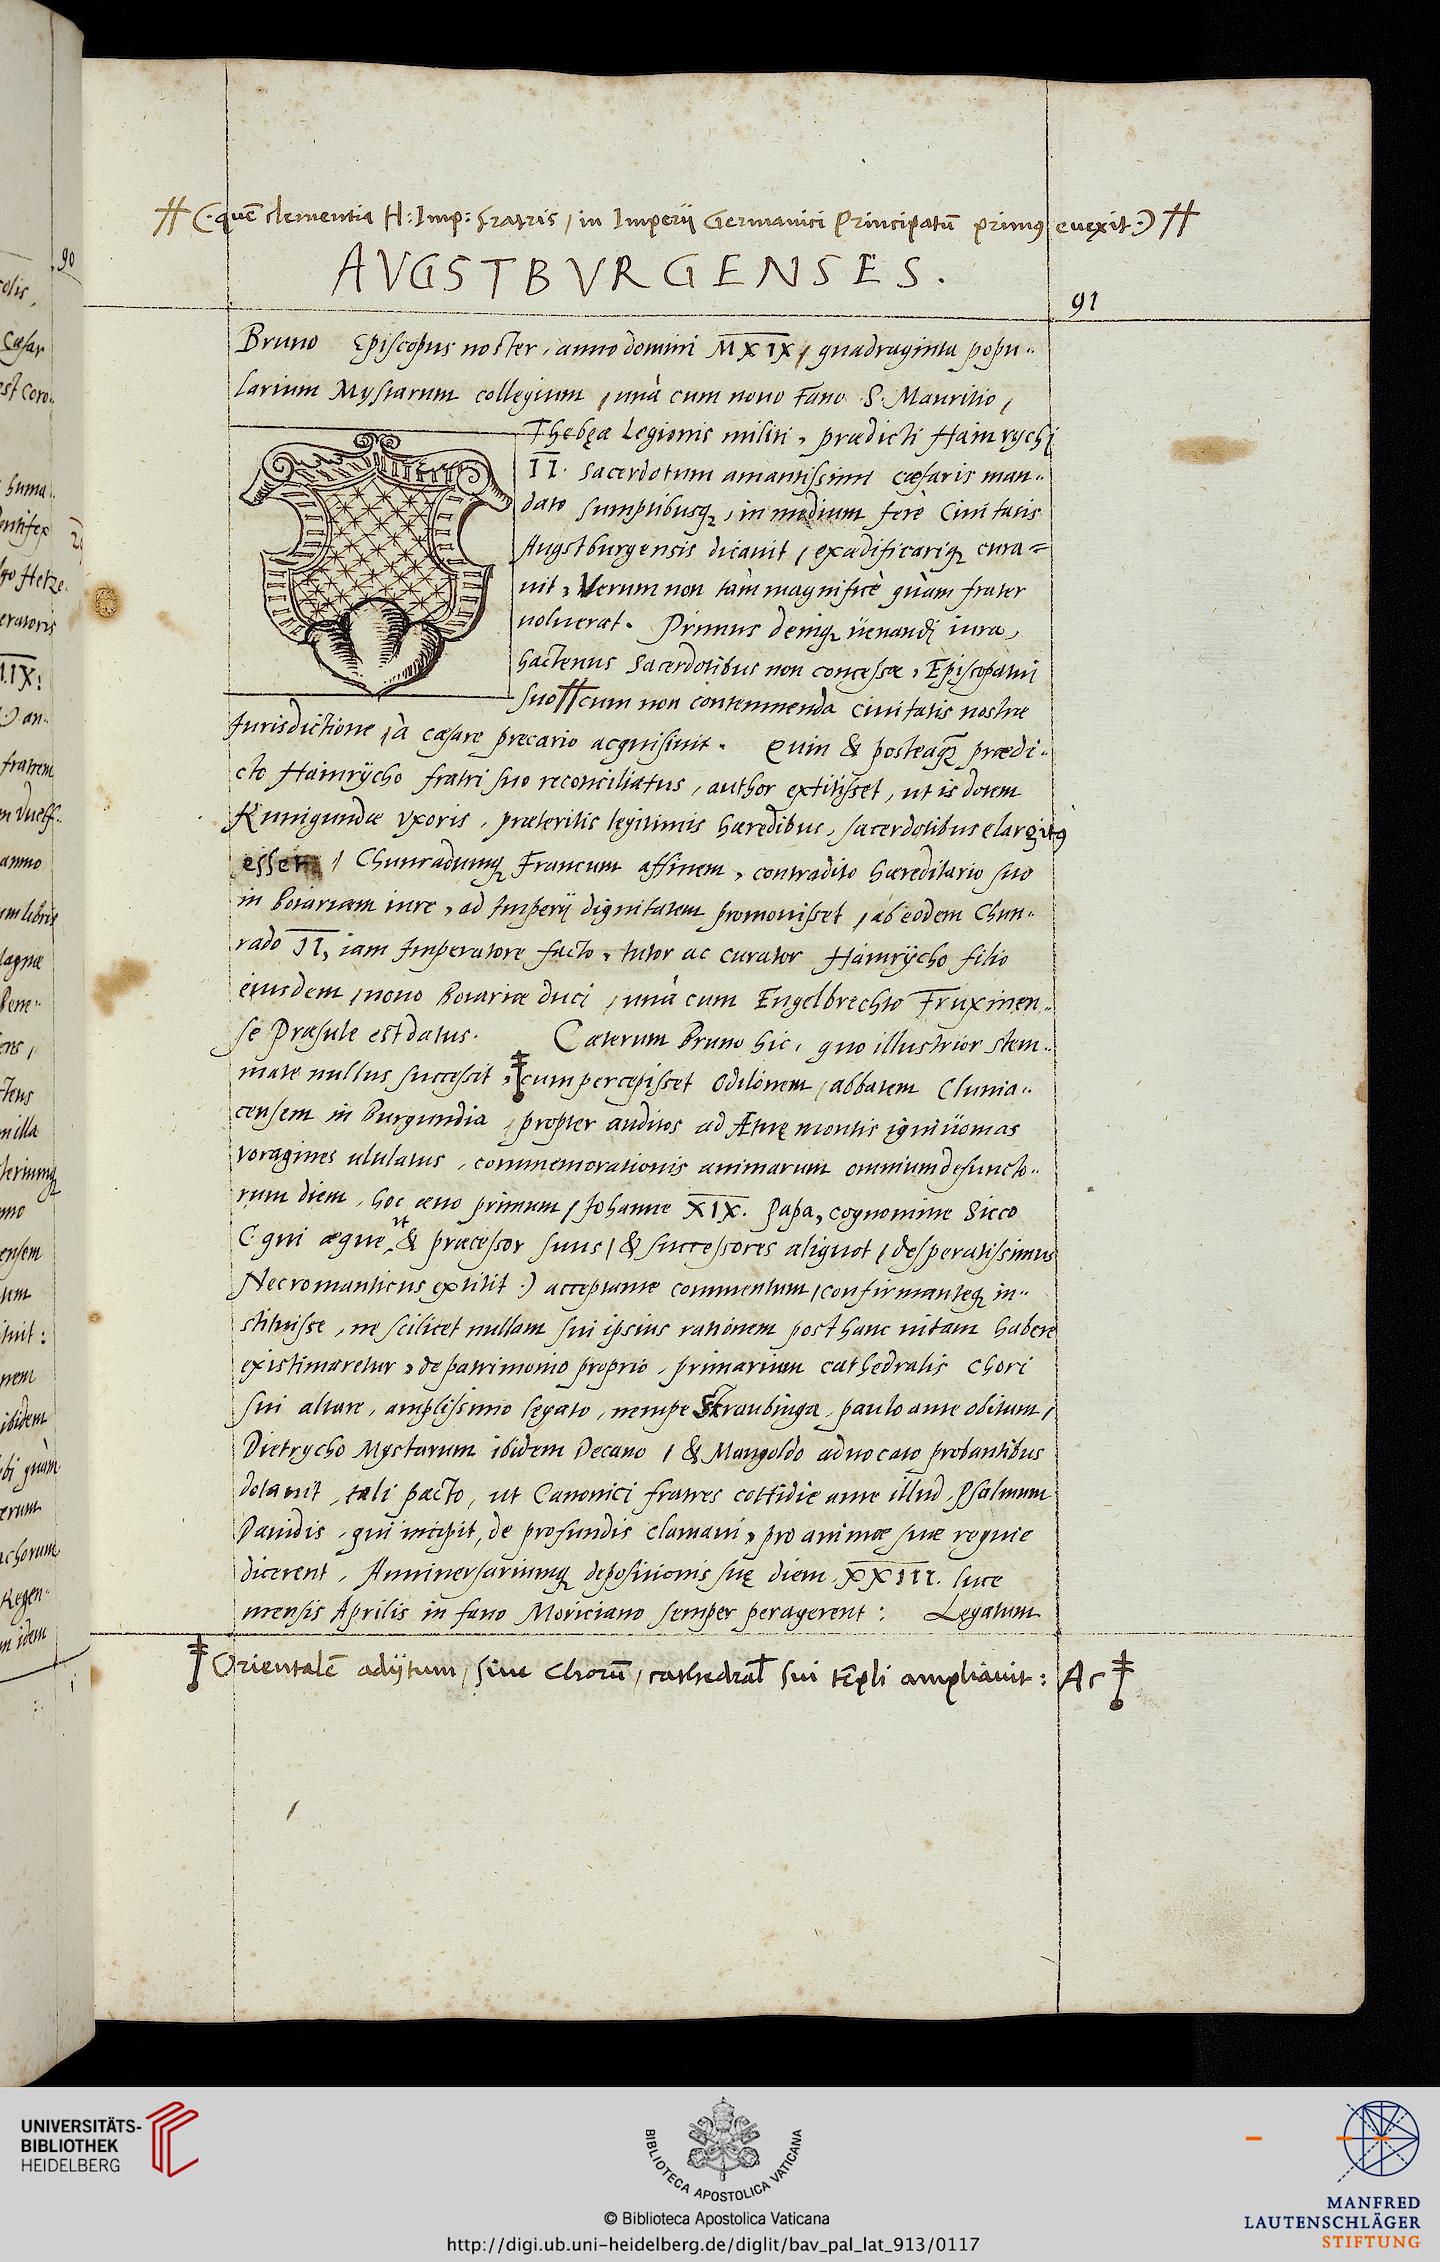 (·quē clementia H: Imp: fratris / in Imperij Germanici Principatū primꝰ euexit·)
AVGSTBVRGENSES.
91
Bruno Episcopus noster, anno domini MXIX, quadraginta popu-
larium Mystarum collegium, unà cum nouo Fano S. Mauritio,
Thebęæ Legionis militi, prædicti Hainrychi
II. sacerdotum amantissimi cæsaris man-
dato sumptibusq;, in medium ferè Ciuitatis
Augstburgensis dicauit, exædificariq; cura-
uit, Verum non tàm magnificè quàm frater
uoluerat. Primus deniq; uenandi iura,
hactenus Sacerdotibus non concessa, Episcopatui
suo cum non contemnenda ciuitatis nostræ
Jurisdictione, à cæsare precario acquisiuit. Quin & posteaq̃ prædi-
cto Hainrycho fratri suo reconciliatus, author extitisset, ut is dotem
Kunigundæ Vxoris, præteritis legitimis hæredibus, sacerdotibus elargitꝰ
esset, Chunradumq; Francum affinem, contradito hæreditario suo
in Boiariam iure, ad Imperij dignitatem promouisset, ab eodem Chun-
rado II, iam Imperatore facto, tutor ac curator Hainrycho filio
eiusdem, nouo Boiariæ duci, unà cum Engelbrechto Fruxinen-
se Præsule est datus. Cæterum Bruno hic, quo illustrior stem-
mate nullus successit, cum percepisset Odilonem, abbatem Clunia-
censem in Burgundia, propter auditos ad Ætnę montis igniuomas
voragines ululatus, commemorationis animarum omnium defuncto-
rum diem, hoc æuo primum, Johanne XIX. Papa, cognomine Sicco
(· qui æque ut & præcessor suus, & successores aliquot, desperatissimus
Necromanticus extitit ·) acceptante commentum, confirmanteq; in-
stituisse, ne scilicet nullam sui ipsius rationem post hanc uitam habere
existimaretur, de patrimonio proprio, primarium cathedralis chori
sui altare, amplissimo legato, nempe Straubinga, paulo ante obitum,
Dietrycho Mystarum ibidem Decano, & Mangoldo aduocato probantibus
dotauit, tali pacto, ut Canonici fratres cottidie ante illud, Psalmum
Dauidis, qui incipit, de profundis clamaui, pro animæ suæ requie
dicerent, Anniuersariumq; depositionis suę diem, XXIII. luce
mensis Aprilis in fano Moriciano semper peragerent: Legatum
Orientalē adijtum, siue Chorū, cathedral sui tēpli ampliauit: Ac
UNIVERSITÄTS-
BIBLIOTHEK
HEIDELBERG
BIBLIOTECA APOSTOLICA VATICANA
© Biblioteca Apostolica Vaticana
http://digi.ub.uni-heidelberg.de/diglit/bav_pal_lat_913/0117
MANFRED
LAUTENSCHLÄGER
STIFTUNG